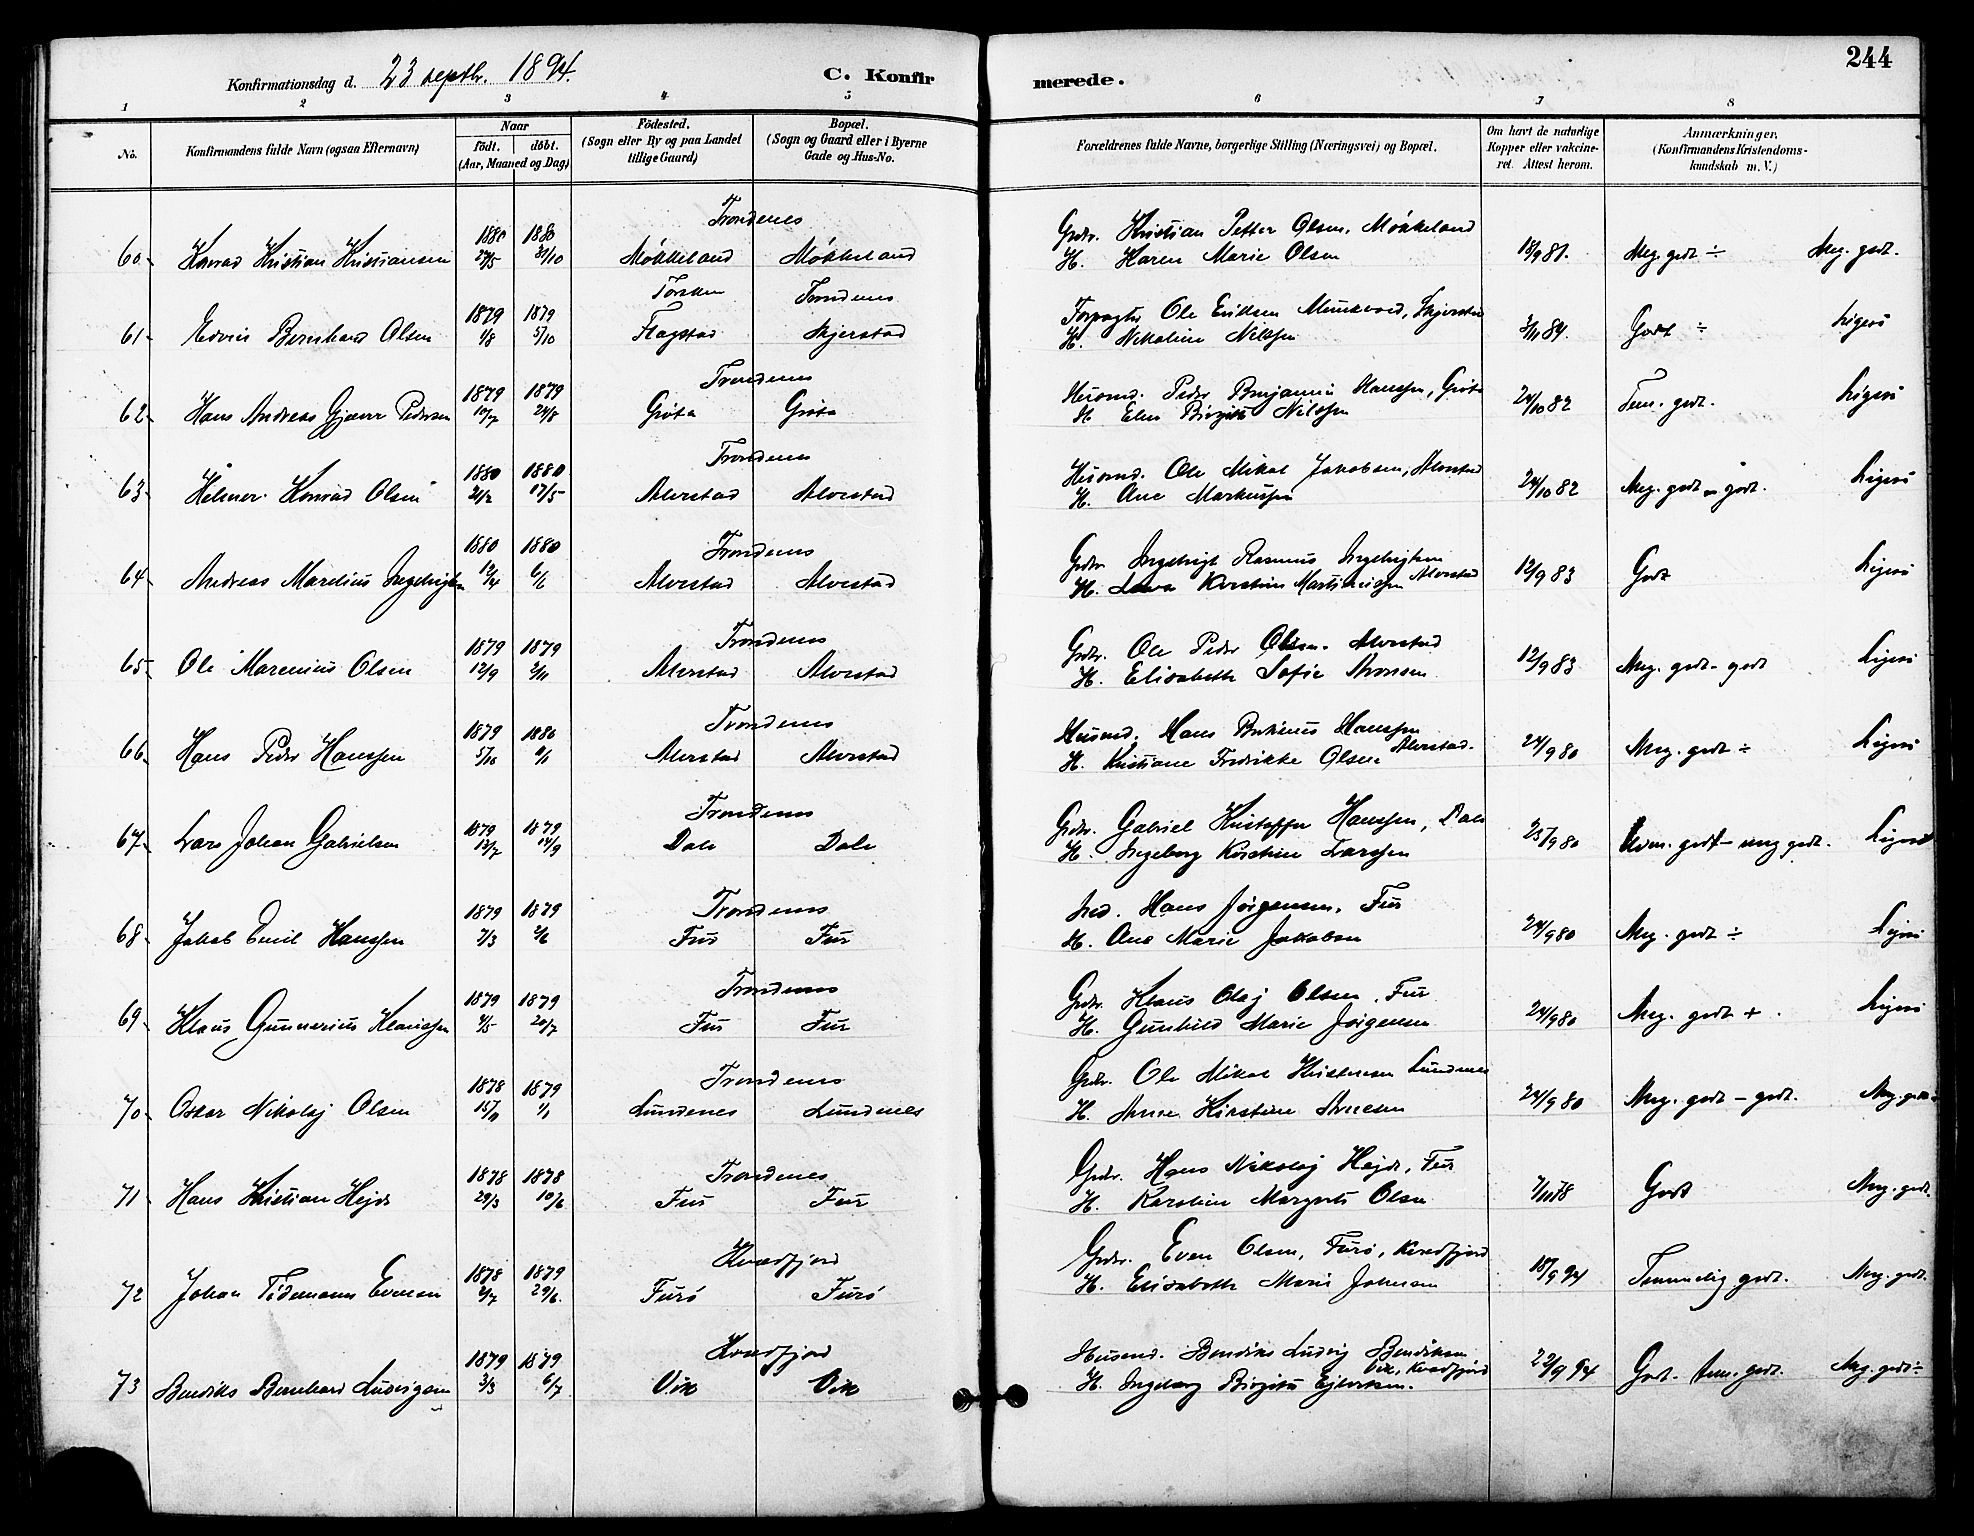 244
Konfirmationsdag d. 23 septbr. 1894.
C. Konfirmerede.
1 2 3 4 5 6 7 8
No.
Konfirmandens fulde Navn (ogsaa Efternavn)
Naar
födt. döbt.
(Aar, Maaned og Dag)
Födested.
(Sogn eller By og paa Landet
tillige Gaard)
Bopæl.
(Sogn og Gaard eller i Byerne
Gade og Hus-No.
Forældrenes fulde Navne, borgerlige Stilling (Næringsvei) og Bopæl.
Om havt de naturlige
Kopper eller vakcine-
ret. Attest herom.
Anmærkninger,
(Konfirmandens Kristendoms-
kundskab m. V.)
Trondenes
1880 1880 Grdbr. Kristian Petter Olsen, Møkkeland
60 Konrad Kristian Kristiansen 27/5 31/10 Møkkeland Møkkeland H. Karen Marie Olsen 18/9 81. Meg. godt ÷ Meg. godt.
Torsken Trondenes
1879 1879 Forpagter Ole Eriksen Munkvord, Skjerstad
61 Edvin Bernhard Olsen 1/8 5/10 Flagstad Skjerstad H. Nikoline Nilssen 3/11 84. Godt ÷ Ligesaa
Trondenes
1879 1879 Husmd. Peder Benjamin Hanssen, Grøta
62 Hans Andreas Gjæver Pedersen 10/7 24/8 Grøta Grøta H. Elen Birgitte Nilssen 24/10 82 Tem. godt. Ligesaa
Trondenes
1880 1880 Husmd. Ole Mikal Jakobsen, Alvestad
63 Hilmer Konrad Olsen 21/2 17/5 Alvestad Alvestad H. Ane Markussen 24/10 82 Meg. godt - godt. Ligesaa
Trondenes
1880 1880 Grdbr. Ingebrigt Rasmus Ingebrigtsen
64 Andreas Marelius Ingebrigtsen 12/4 6/6 Alvestad Alvestad H. Kirstine Martinussen Alvestad 12/9 83 Godt Ligesaa
Trondenes
1879 1879 Grdbr. Ole Peder Olsen. Alvestad
65 Ole Marenius Olsen 12/9 2/11 Alvestad Alvestad H. Elisabeth Sofie Aronsen 12/9 83 Meg. godt - godt Ligesaa
Trondenes
1879 1880 Husmd. Hans Hanssen
66 Hans Peder Hanssen 5/10 11/1 Alvestad Alvestad H. Kristiane Fredrikke Olsen Alvestad. 24/9 80 Meg. godt ÷ Ligesaa
Trondenes
1879 1879 Grdbr. Gabriel Kristoffer Hanssen, Dale
67 Lars Johan Gabrielsen 13/7 14/9 Dale Dale H. Ingeborg Kirstine Larssen 25/9 80 Udm. godt - meg godt. Ligesaa
Trondenes
1879 1879 Ind. Hans Jørgensen, Fur
68 Jakob Emil Hanssen 7/3 2/6 Fur Fur H. Ane Marie Jakobsen 24/9 80 Meg. godt ÷ Ligesaa
Trondenes
1879 1879 Grdbr. Klaus Olaj Olsen, Fur
69 Klaus Gunnerius Klaussen 4/5 20/7 Fur Fur H. Gunhild Marie Jørgensen 24/9 80 Meg. godt + Ligesaa
Trondenes
1878 1879 Grdbr. Ole Mikal Kristensen Lundenes
70 Oskar Nikolaj Olsen 15/11 1/1 Lundenes Lundenes H. Anne Kirstine Arnesen 24/9 80 Meg. godt - godt. Meg. godt
Trondenes
1878 1878 Grdbr. Hans Nikolaj Hejde, Fur
71 Hans Kristian Hejde 29/3 10/6 Fur Fur H. Karoline Margrete Olsen 7/11 78 Godt Meg. godt.
Kvædfjord
1878 1879 Grdbr. Even Olsen, Furø, Kvædfjord
72 Johan Tidemann Evensen 2/7 29/6 Furø Furø H. Elisabeth Marie Johnsen 18/9 94 Temmelig godt. Meg. godt.
Kvædfjord
1879 1879 Husmd. Bendiks Ludvig Bendiksen
73 Bendiks Bernhard Ludvigsen 3/3 6/7 Vik Vik H. Ingeborg Birgitte Ejlertsen. Vik, Kvædfjord 22/9 94 Godt. tem. godt. Meg. godt ÷